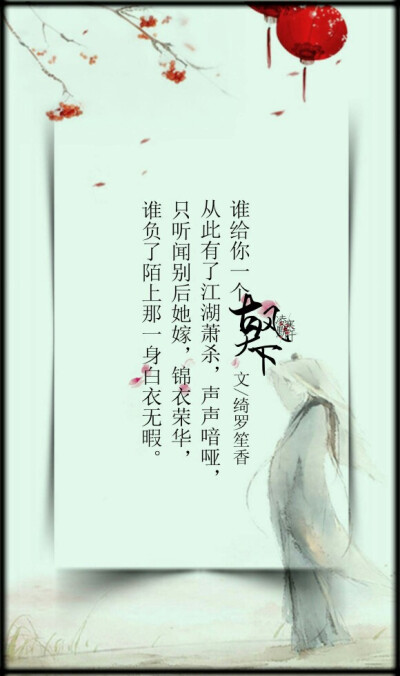 谁给你一个
古风天下
文/绮罗笙香
从此有了江湖萧杀,声声喑哑,
只听闻别后她嫁,锦衣荣华,
谁负了陌上那一身白衣无暇。